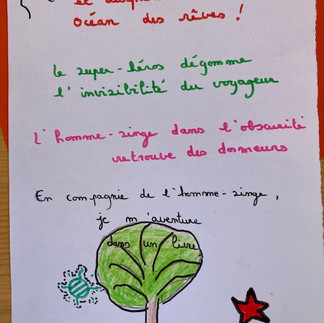 et
océan des rêves !
Le super-héros dégomme
l'invizibilité du voyageur
L'homme-singe dans l'obscurité
retrouve des dormeurs
En compagnie de l'homme-singe,
je m'aventure
dans un livre